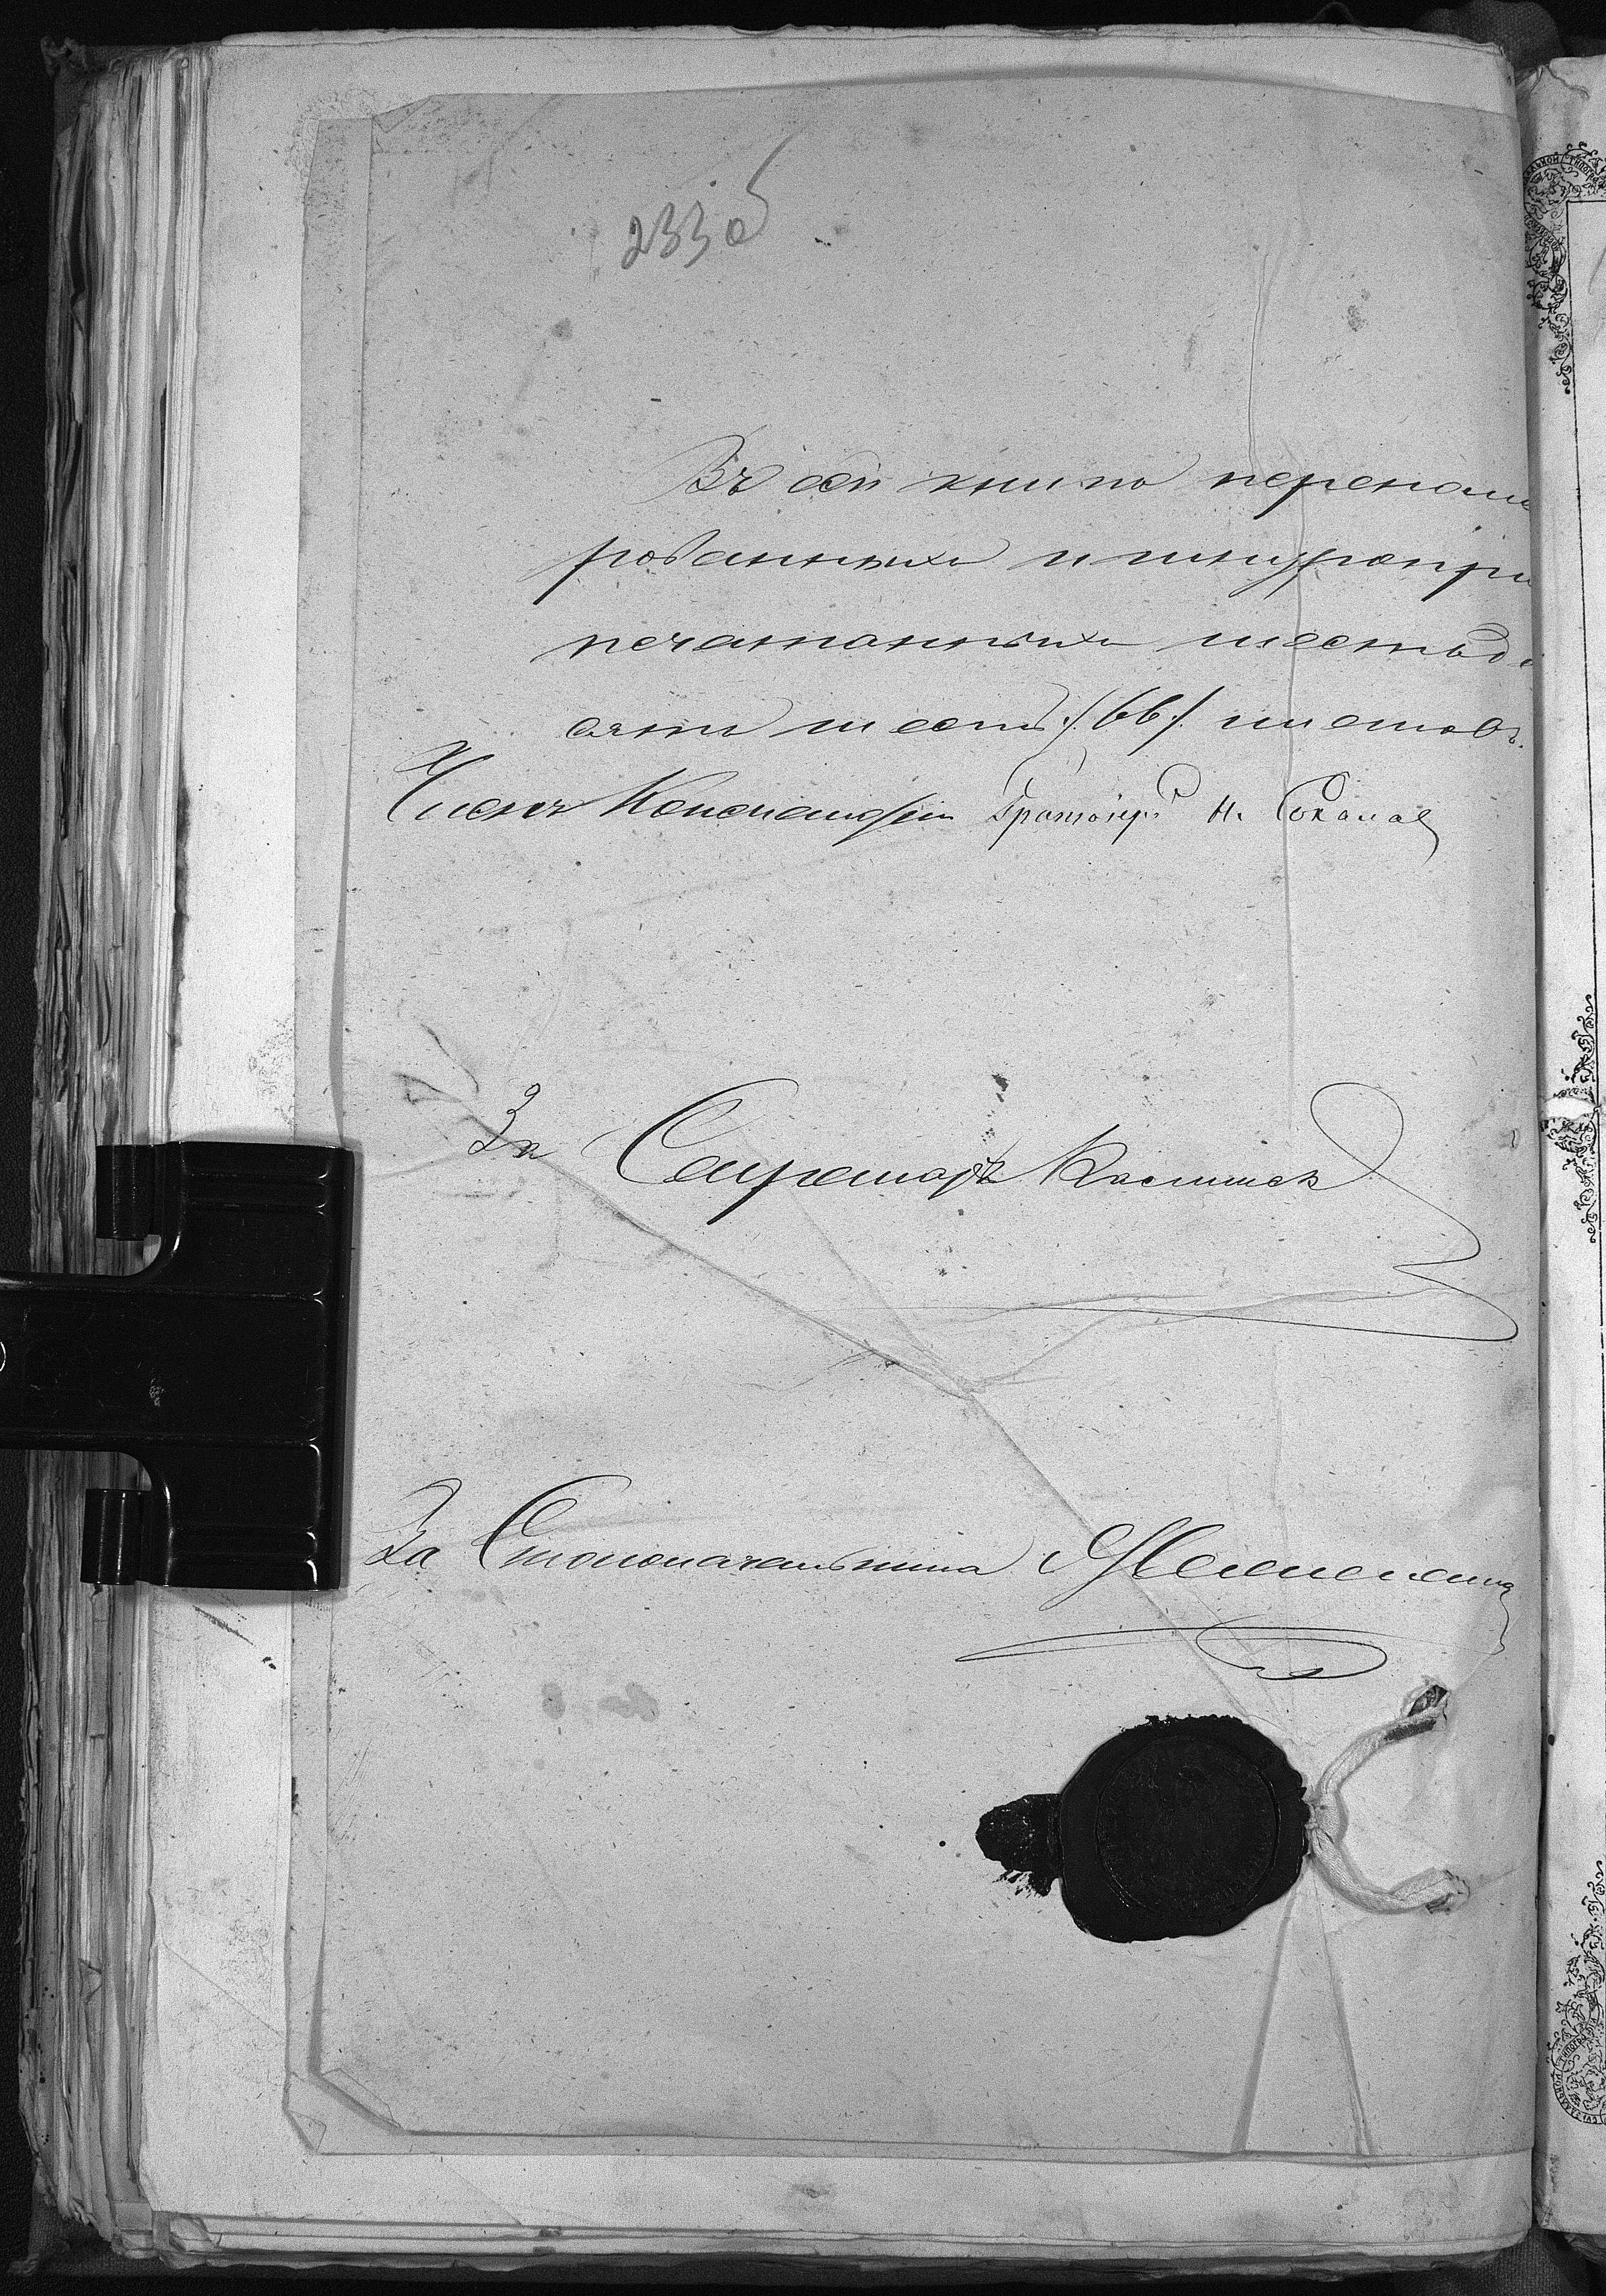 233 об
Въ сей книгѣ перенуме
рованныхъ и шнуропри
печатанныхъ шестьде
сятъ шесть /:66:/ листовъ.
Членъ Консисторіи Протоіер. Н. Соколов
За Секретаря
За Столоначальника